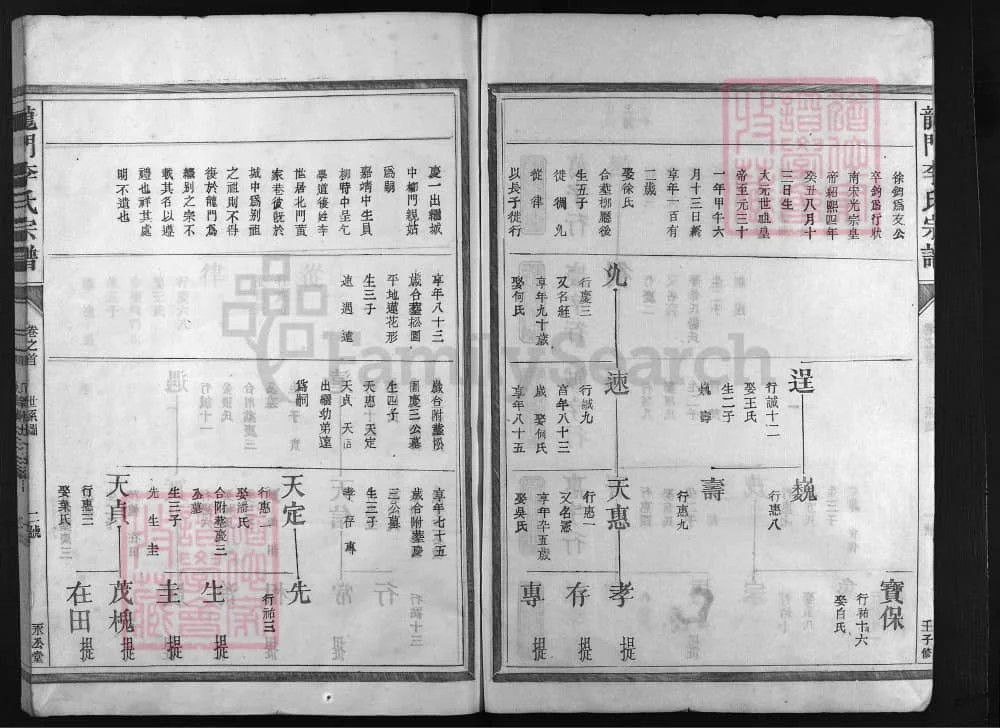 龍門李氏宗譜
壬子修
徐鈞爲友公
卒鈞爲行狀
南宋光宗皇
帝紹熙四年
癸丑八月十
三日生
大元世祖皇
帝至元三十
一年甲午六
月十三日終
享年一百有
二歲
娶徐氏
合墓柳廳後
生五子
從 徇 允
徙 律
以長子徙行
允
行慶三
又名莊
享年九十歲
娶何氏
逞
行誠十二
娶王氏
生二子
巍 壽
速
行誠九
享年八十三
歲 娶何氏
享年八十五
巍
行惠八
壽
行惠九
天惠
行惠一
又名憲
享年辛五歲
娶吳氏
寶保
行祐十六
娶白氏
孝 提
存 提
專 提
慶一出繼城
中柳門親姑
爲嗣
嘉靖中生員
柳時中呈乞
學道復姓李
世居北門黃
家巷彼既於
城中爲別祖
之祖則不得
復於龍門爲
繼別之宗不
載其名以遵
禮也祥其處
明不遺也
享年八十三
歲合墓松園
平地蓮花形
生三子
速 遇 遠
歲合附墓松
園慶三公墓
生四子
天惠 天定
天貞 天祐
出繼幼弟遠
爲嗣
享年七十五
歲合附墓慶
三公墓
生三子
孝 存 專
天定
行惠二
娶潘氏
合附墓慶三
公墓
生三子
先 生 圭
天貞
行惠三
娶葉氏
先
行祐三
生 提
圭 提
茂槐 提
在田 提
龍門李氏宗譜
卷之首
世系圖
二號
永丞堂
FamilySearch